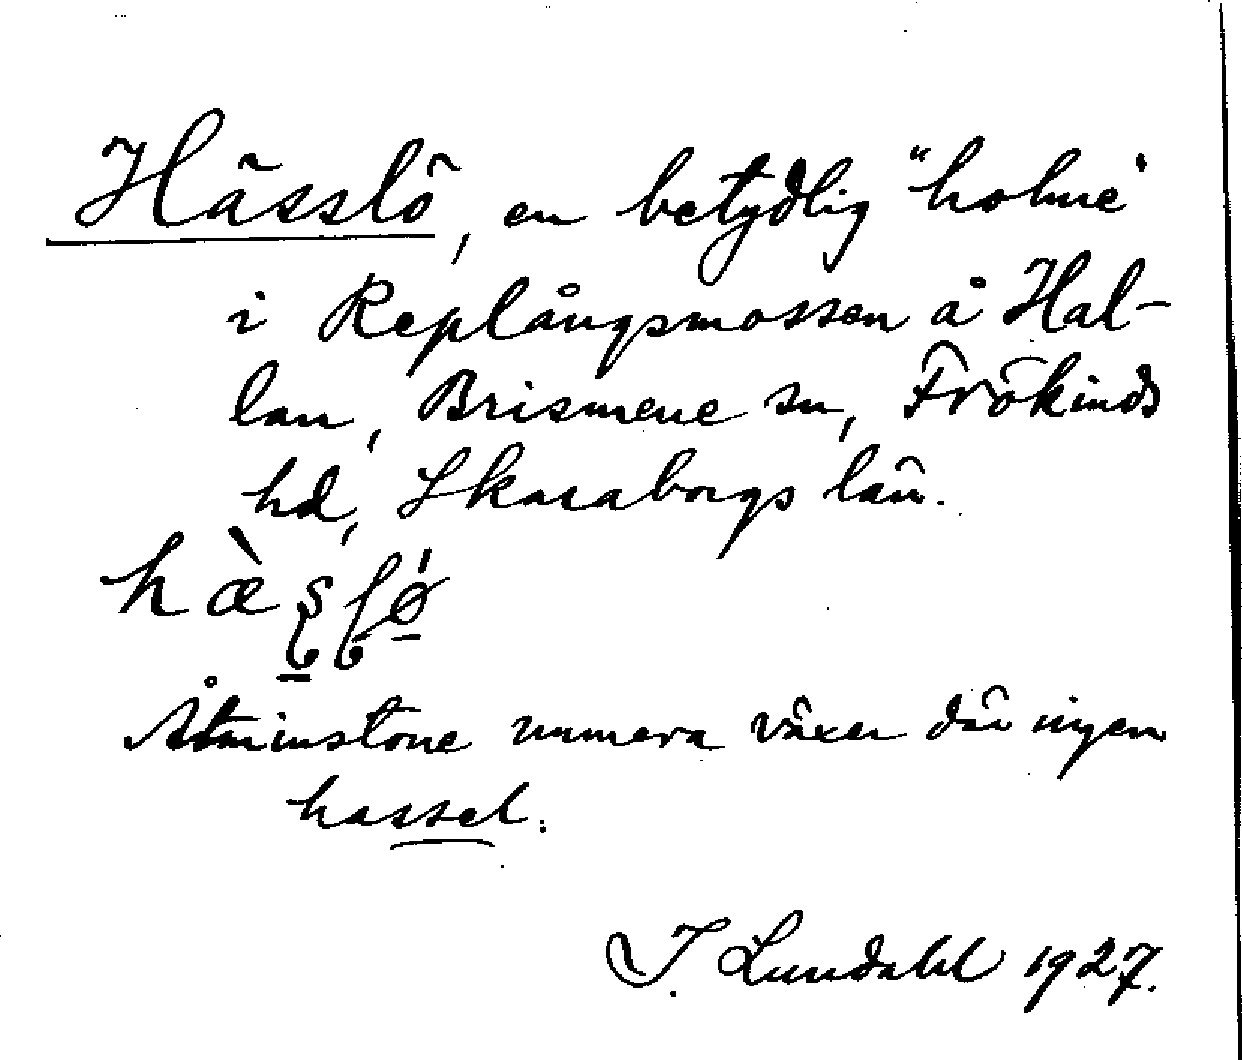 Hässlö, en betydlig "holme"
i Replångsmossen å Hal-
lan, Brismene sn, Frökinds
hd, Skaraborgs län.
hæ̀s̨lǿ
Åtminstone numera växer där ingen
hassel.
I. Lundahl 1927.